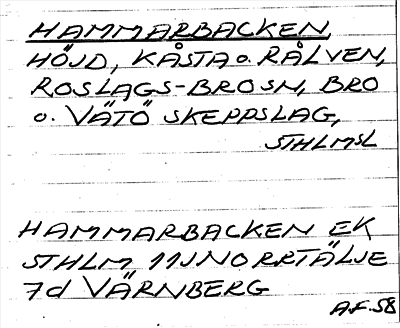 HAMMARBACKEN,
HÖJD, KÅSTA o. RÅLVEN,
ROSLAGS-BROSN, BRO
o. VÄTÖ SKEPPSLAG,
STHLMSL
HAMMARBACKEN EK
STHLM 11J NORRTÄLJE
7d VÄRNBERG
AF. 58